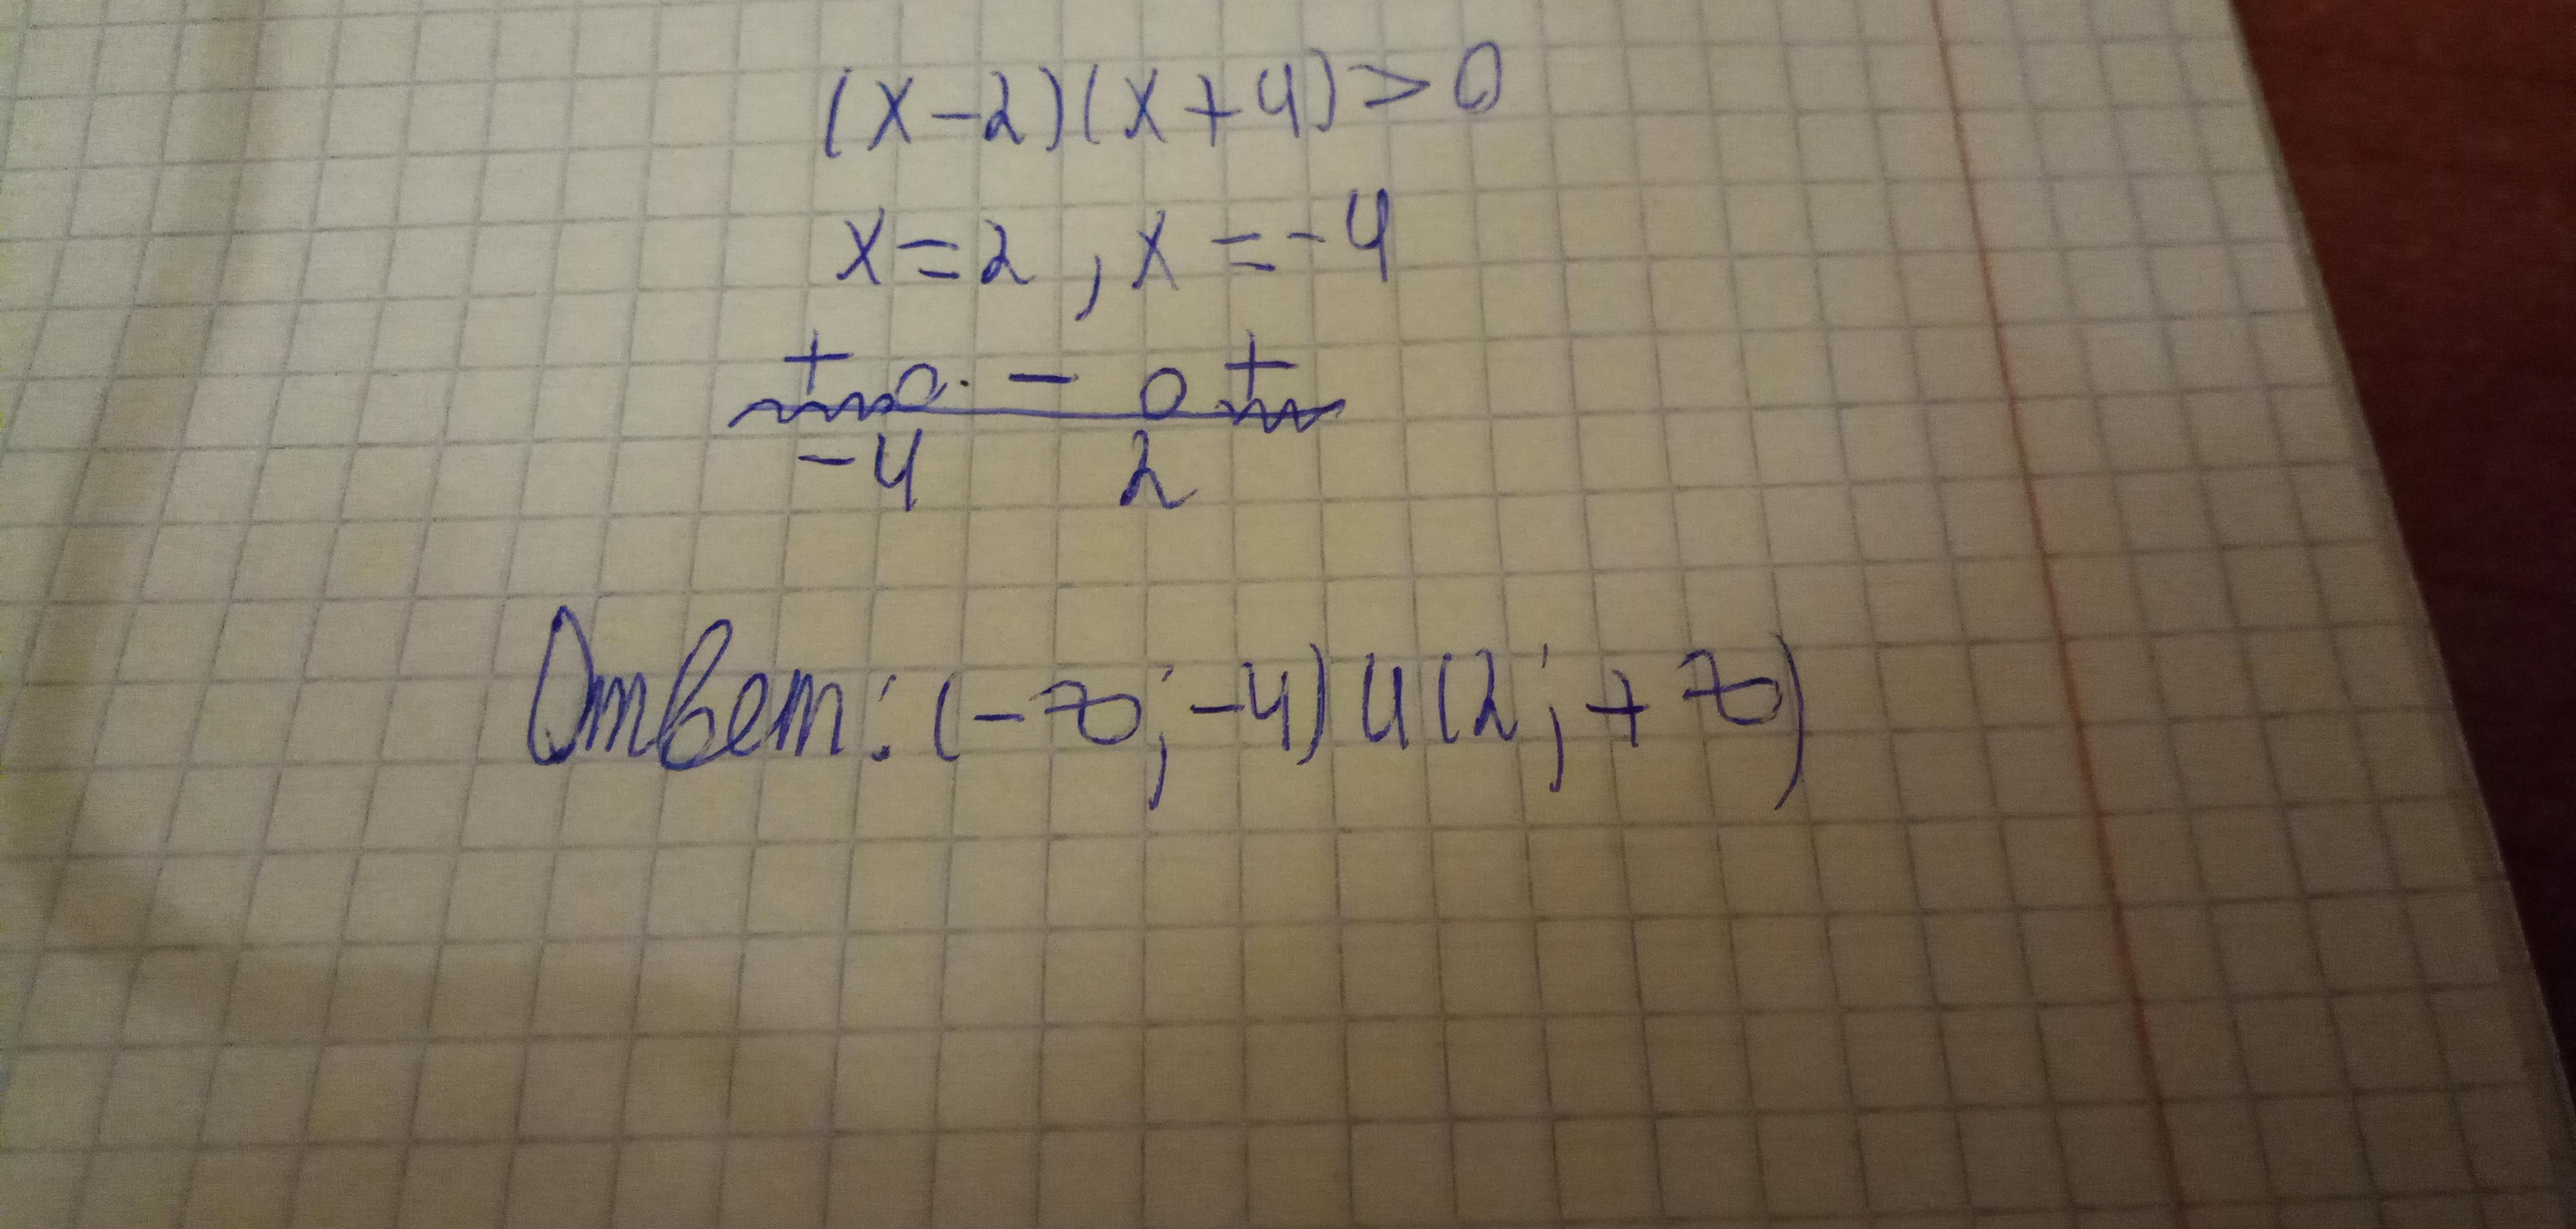 (x-2)(x+4)>0
x=2, x=-4
+ - +
-4 2
Ответ: (-∞; -4)∪(2; +∞)